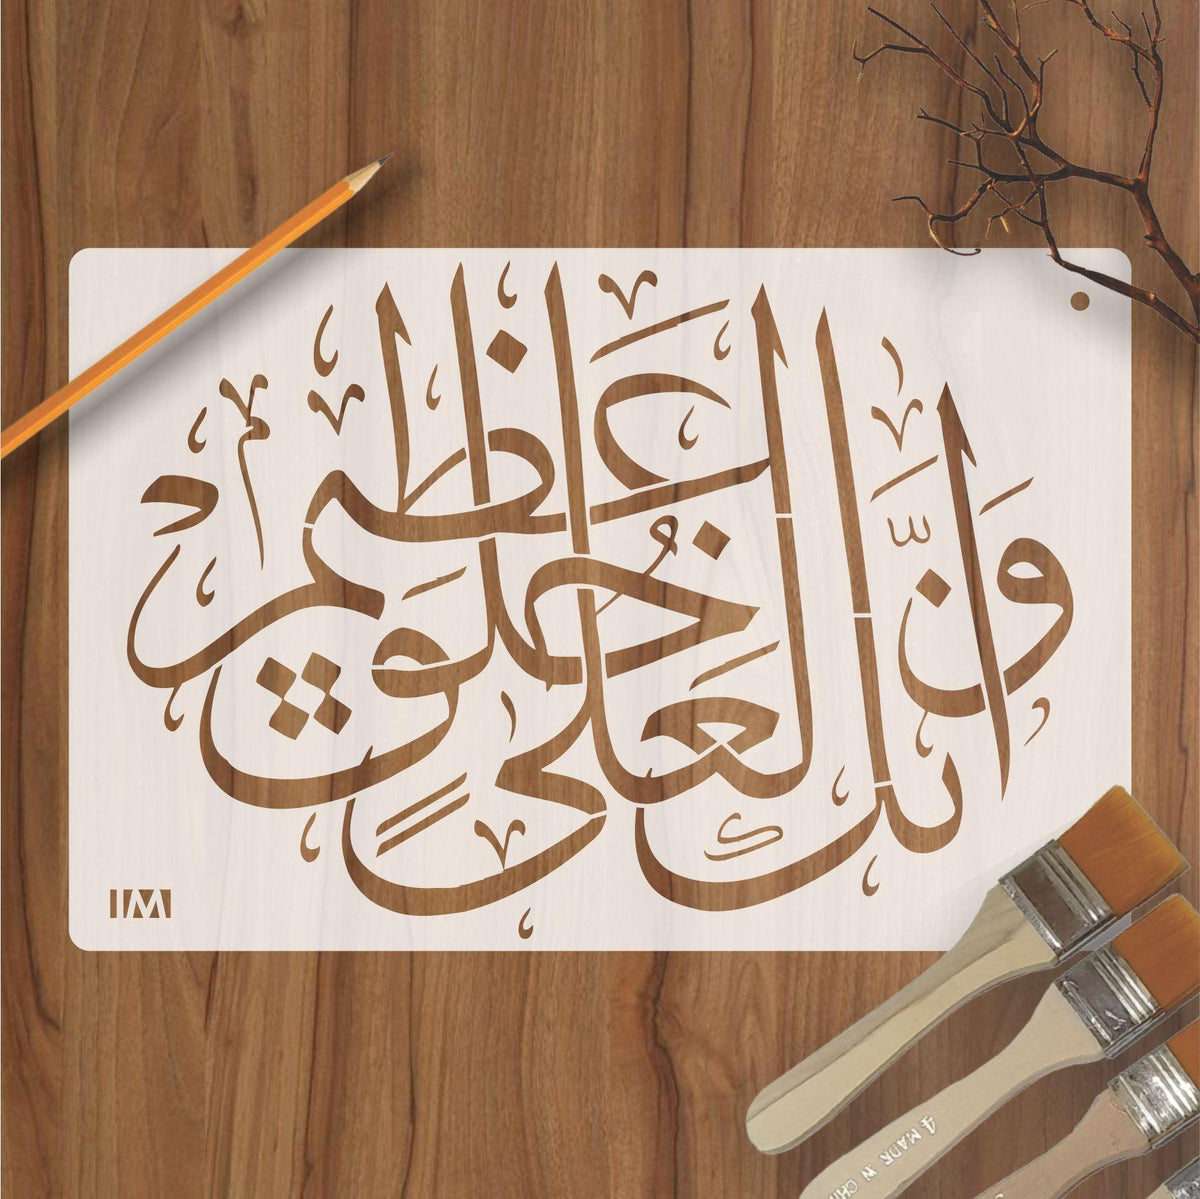 وَإِنَّكَ لَعَلَىٰ خُلُقٍ عَظِيمٍ
IM
4 MADE IN CHI